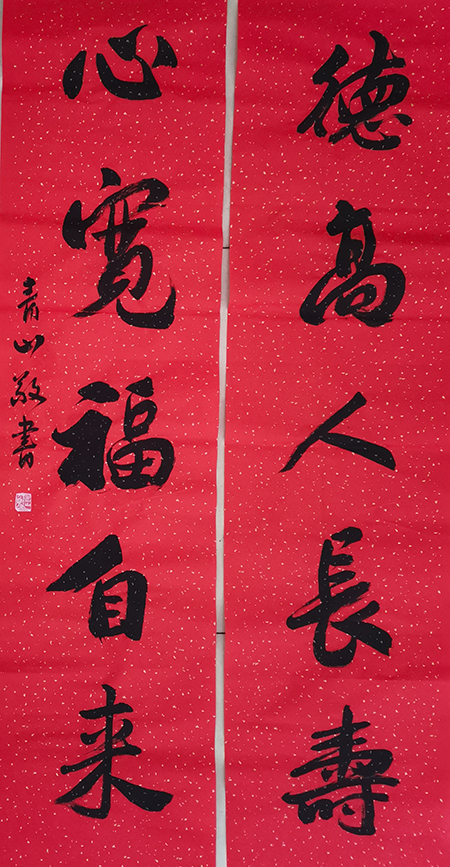 德高人長壽
心寬福自来
青山敬書